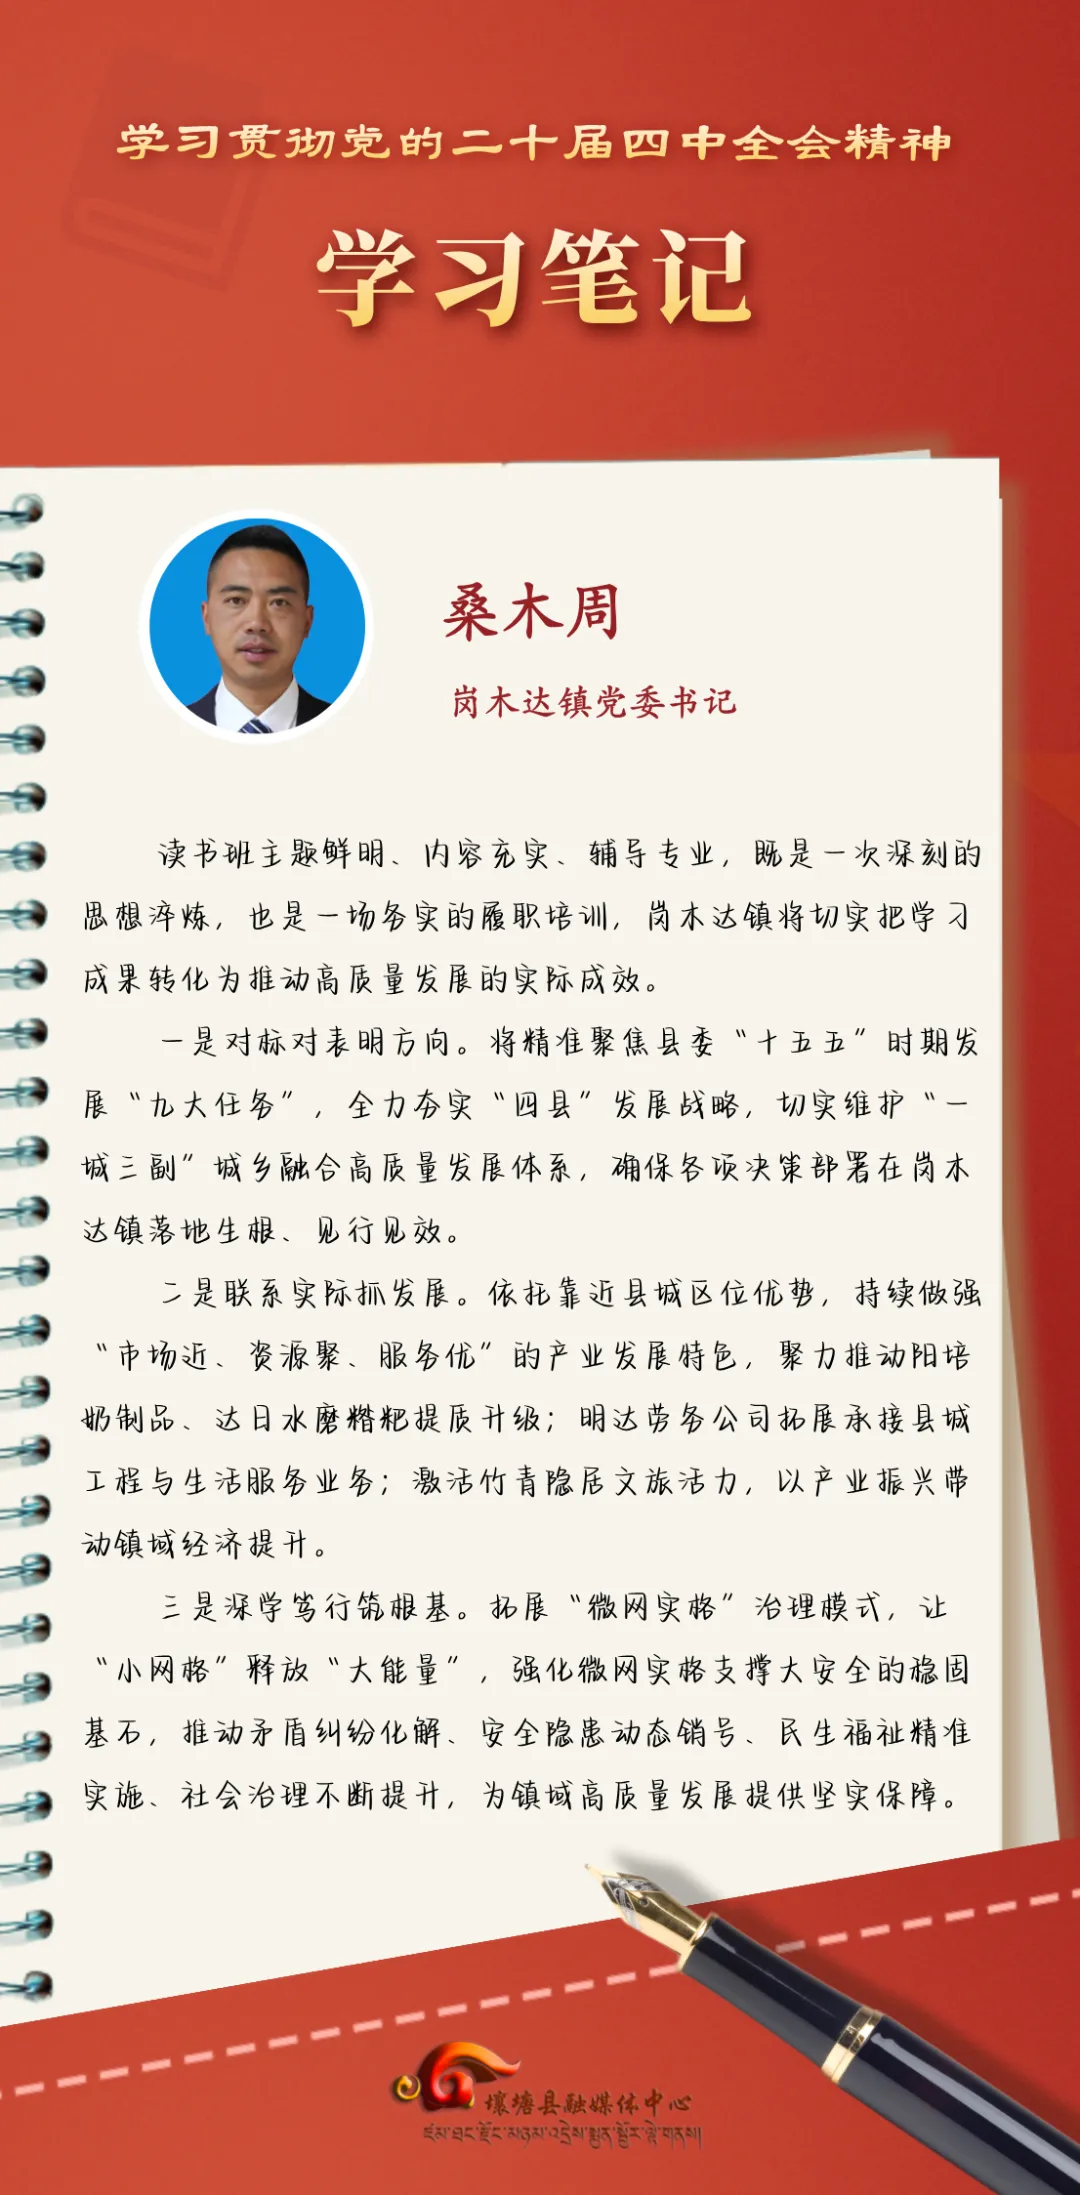 学习贯彻党的二十届四中全会精神
学习笔记
桑木周
岗木达镇党委书记
读书班主题鲜明、内容充实、辅导专业，既是一次深刻的
思想淬炼，也是一场务实的履职培训，岗木达镇将切实把学习
成果转化为推动高质量发展的实际成效。
一是对标对表明方向。将精准聚焦县委“十五五”时期发
展“九大任务”，全力夯实“四县”发展战略，切实维护“一
城三副”城乡融合高质量发展体系，确保各项决策部署在岗木
达镇落地生根、见行见效。
二是联系实际抓发展。依托靠近县城区位优势，持续做强
“市场近、资源聚、服务优”的产业发展特色，聚力推动阳培
奶制品、达日水磨糌粑提质升级；明达劳务公司拓展承接县城
工程与生活服务业务；激活竹青隐居文旅活力，以产业振兴带
动镇域经济提升。
三是深学笃行筑根基。拓展“微网实格”治理模式，让
“小网格”释放“大能量”，强化微网实格支撑大安全的稳固
基石，推动矛盾纠纷化解、安全隐患动态销号、民生福祉精准
实施、社会治理不断提升，为镇域高质量发展提供坚实保障。
壤塘县融媒体中心
ཛམ་ཐང་རྫོང་མཉམ་འདྲེས་སྨྱན་སྦྱོར་ལྟེ་གནས།